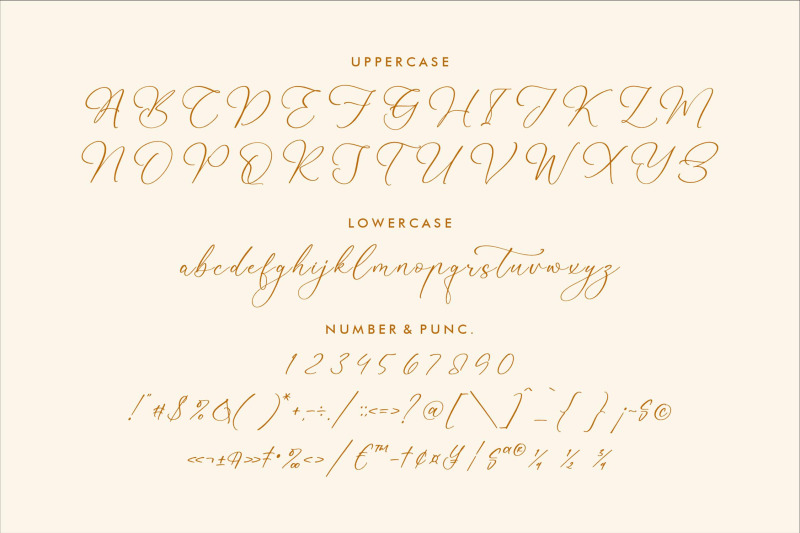 UPPERCASE
A B C D E F G H I J K L M
N O P Q R S T U V W X Y Z
LOWERCASE
abcdefghijklmnopqrstuvwxyz
NUMBER & PUNC.
1 2 3 4 5 6 7 8 9 0
!"#$%&( )*+,-÷./:;<=>?@[\]^_`{ }¡~§©
«¬±Я»‡•‰<>/€™–†¢¤¥|§ª®¼ ½ ¾